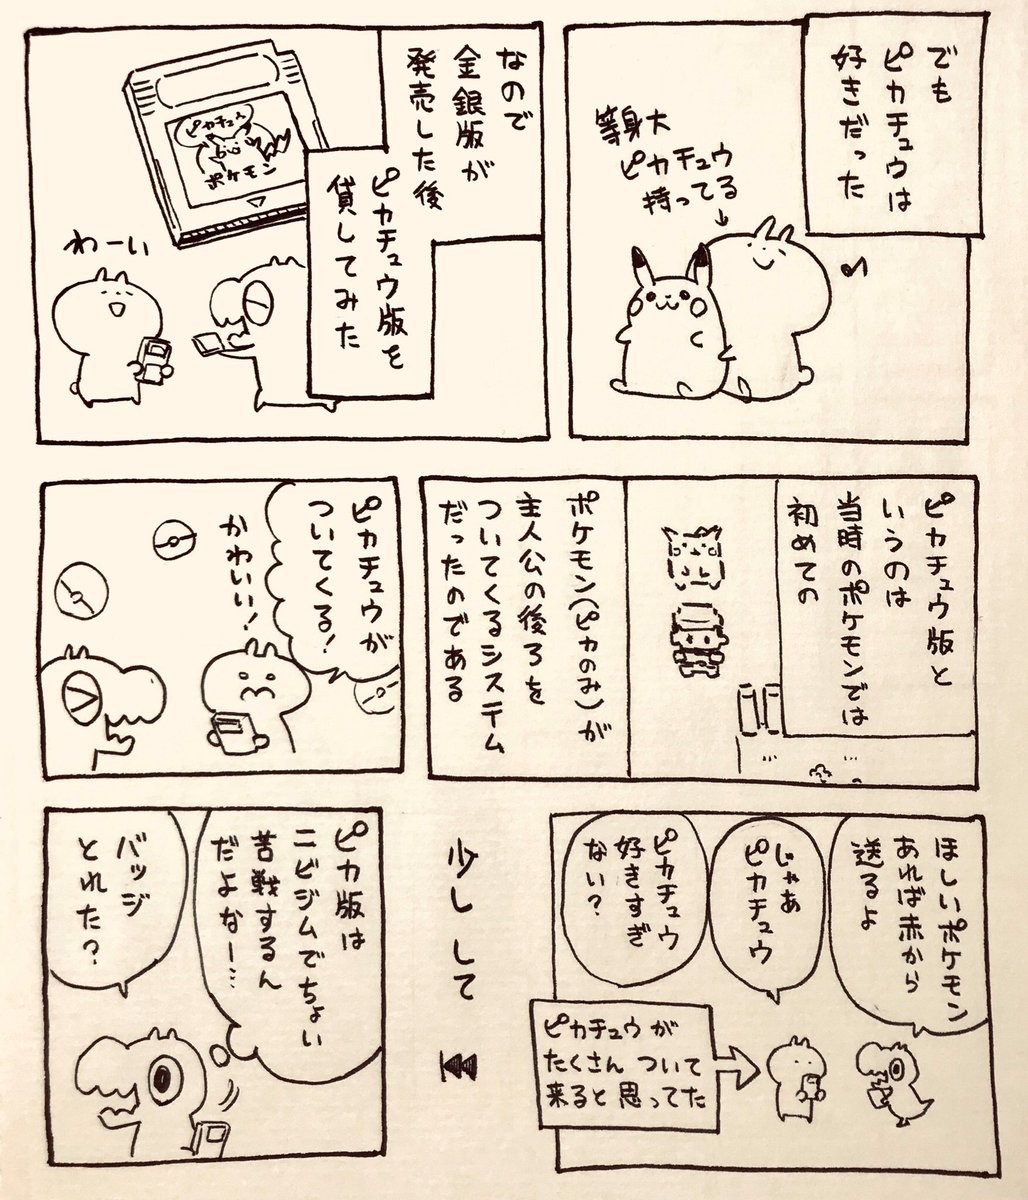 でも
ピカチュウは
好きだった
等身大
ピカチュウ
持ってる
なので
金銀版が
発売した後
ピカチュウ版を
貸してみた
ピカチュウ
ポケモン
わーい
ピカチュウ版と
いうのは
当時のポケモンでは
初めての
ポケモン(ピカのみ)が
主人公の後ろを
ついてくるシステム
だったのである
ピカチュウが
ついてくる!
かわいい!
ほしいポケモン
あれば赤から
送るよ
じゃあ
ピカチュウ
ピカチュウ
好きすぎ
ない?
ピカチュウが
たくさんついて
来ると思ってた
少しして
ピカ版は
ニビジムでちょい
苦戦するん
だよなー…
バッジ
とれた?